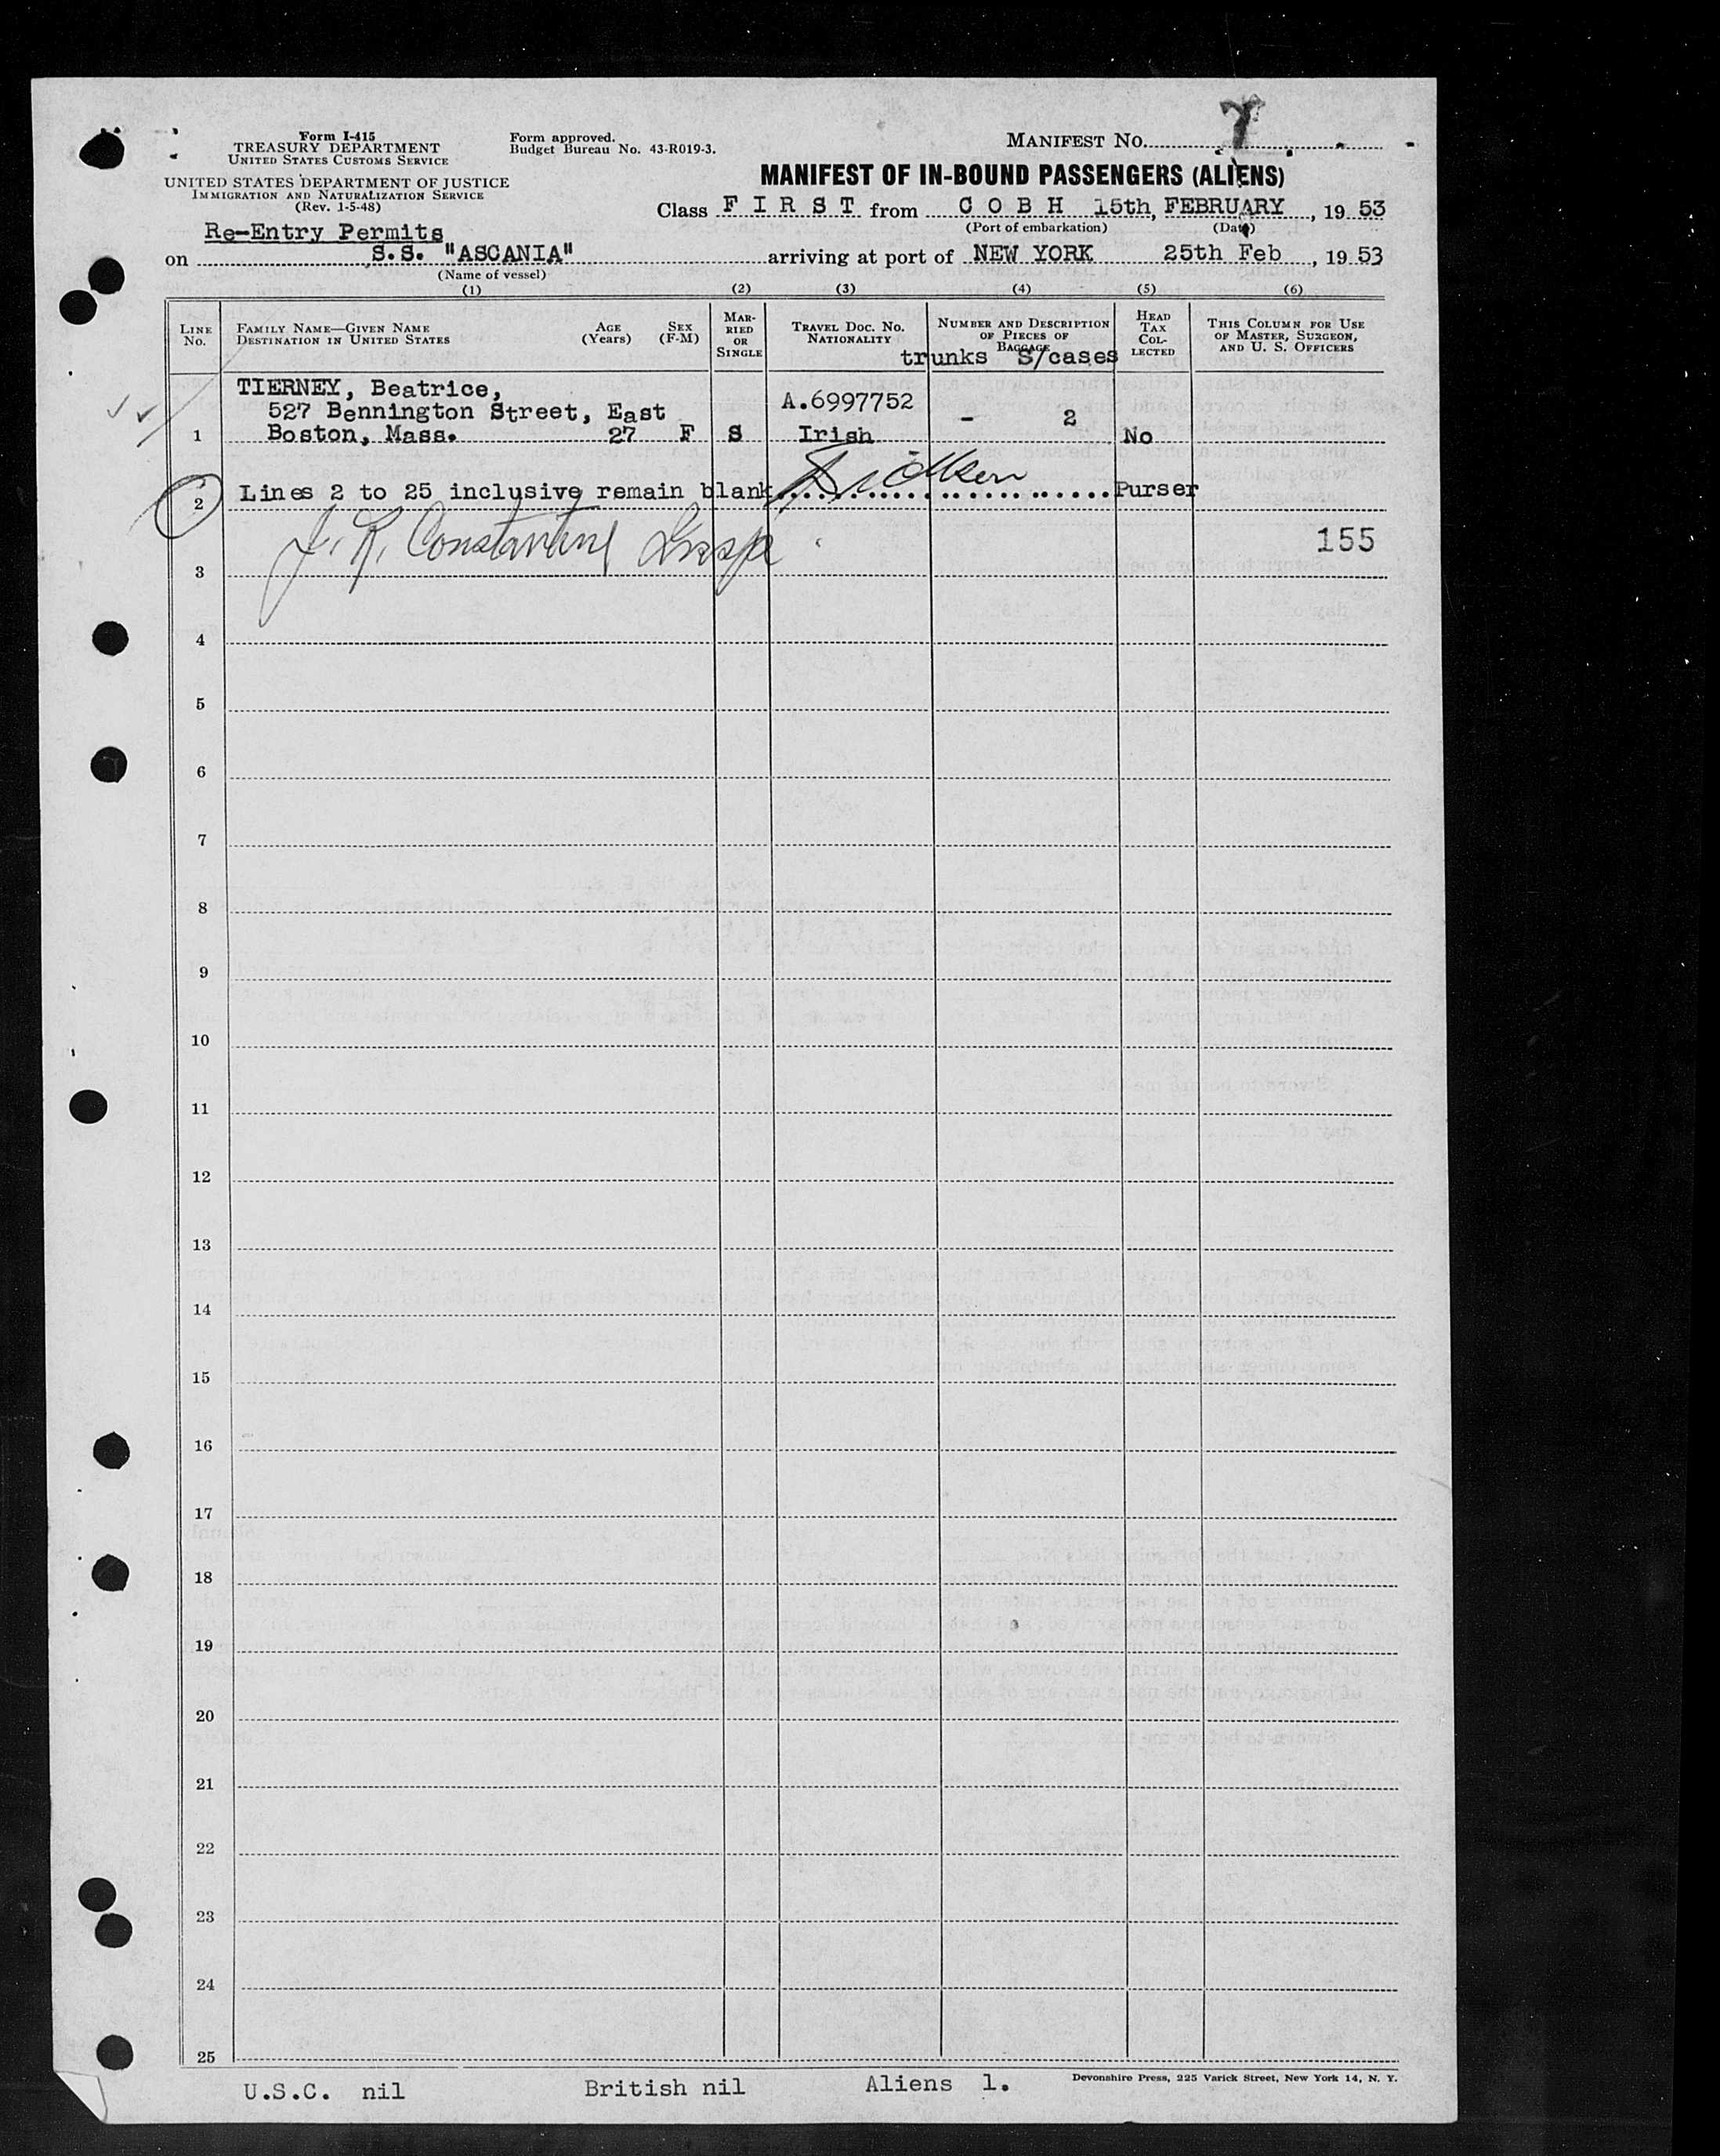 Form I-415
TREASURY DEPARTMENT
UNITED STATES CUSTOMS SERVICE
UNITED STATES DEPARTMENT OF JUSTICE
IMMIGRATION AND NATURALIZATION SERVICE
(Rev. 1-5-48)
Form approved.
Budget Bureau No. 43-R019-3.
MANIFEST No. 7
MANIFEST OF IN-BOUND PASSENGERS (ALIENS)
Class F I R S T from C O B H 15th, FEBRUARY, 19 53
(Port of embarkation) (Date)
Re-Entry Permits
on S.S. "ASCANIA" arriving at port of NEW YORK 25th Feb, 19 53
(Name of vessel)
(1) (2) (3) (4) (5) (6)
LINE No.
FAMILY NAME—GIVEN NAME
DESTINATION IN UNITED STATES
AGE (Years)
SEX (F-M)
MARRIED OR SINGLE
TRAVEL DOC. NO.
NATIONALITY
NUMBER AND DESCRIPTION OF PIECES OF BAGGAGE
trunks S/cases
HEAD TAX COLLECTED
THIS COLUMN FOR USE OF MASTER, SURGEON, AND U. S. OFFICERS
TIERNEY, Beatrice,
527 Bennington Street, East A.6997752 - 2
1 Boston, Mass. 27 F S Irish No
2 Lines 2 to 25 inclusive remain blank. Purser
J. R. Constantine
155
3
4
5
6
7
8
9
10
11
12
13
14
15
16
17
18
19
20
21
22
23
24
25
U.S.C. nil British nil Aliens 1.
Devonshire Press, 225 Varick Street, New York 14, N. Y.